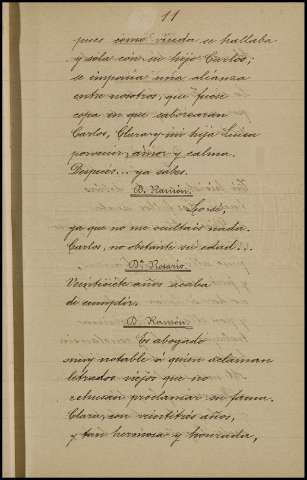 11
pues como viuda se hallaba
y sola con su hijo Carlos;
se imponía una alianza
entre nosotros, que fuese
copa en que saborearan
Carlos, Clara y mi hija Luisa
porvenir, amor y calma.
Después... ya sabes.
D. Ramón.
Lo sé,
ya que no me ocultais nada.
Carlos, no obstante su edad...
Dn. Notario.
Veintisiete años acaba
de cumplir.
D. Ramón.
Es abogado
muy notable á quien aclaman
letrados viejos que no
rehusan proclamar su fama.
Clara, con veintitrés años,
y tan hermosa y honrada,